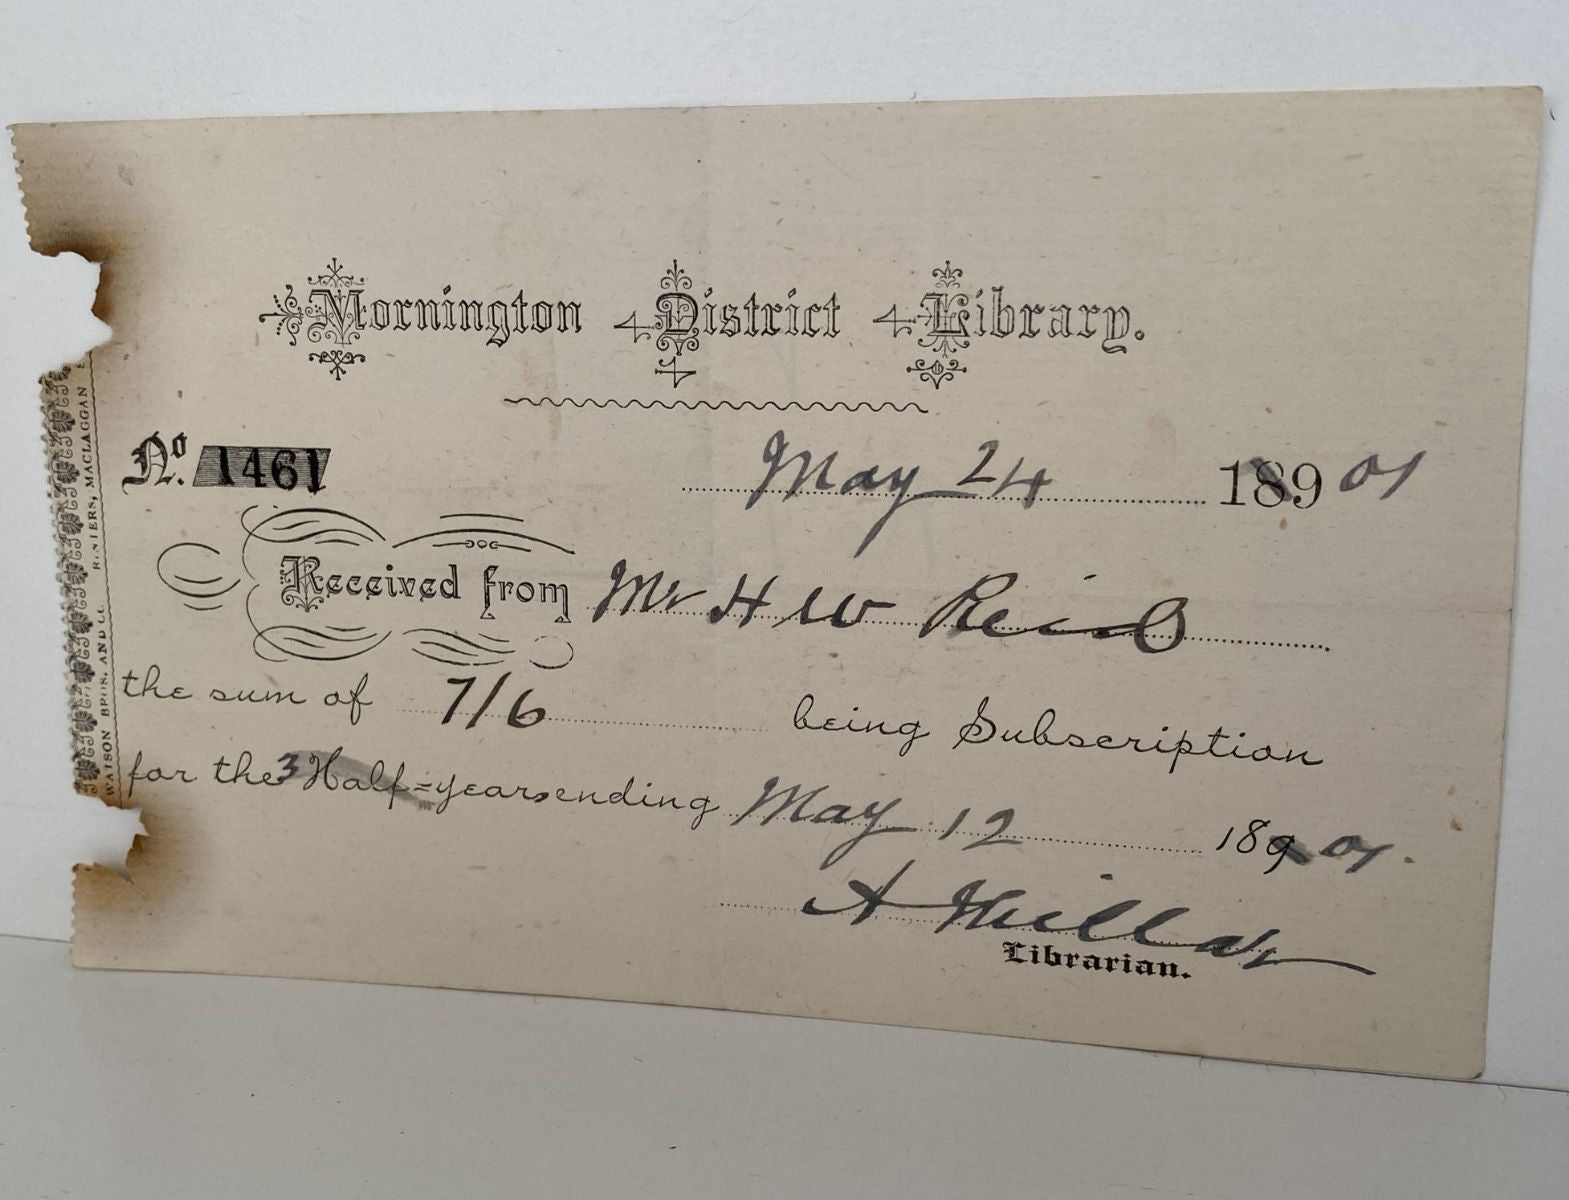 Mornington District Library.
No. 1461 May 24 189 01
Received from Mr H W Reid
the sum of 7/6 being Subscription
for the 3 Half=years ending May 12 189 01
A Millar
Librarian.
BROS. AND CO. MACLAGGAN